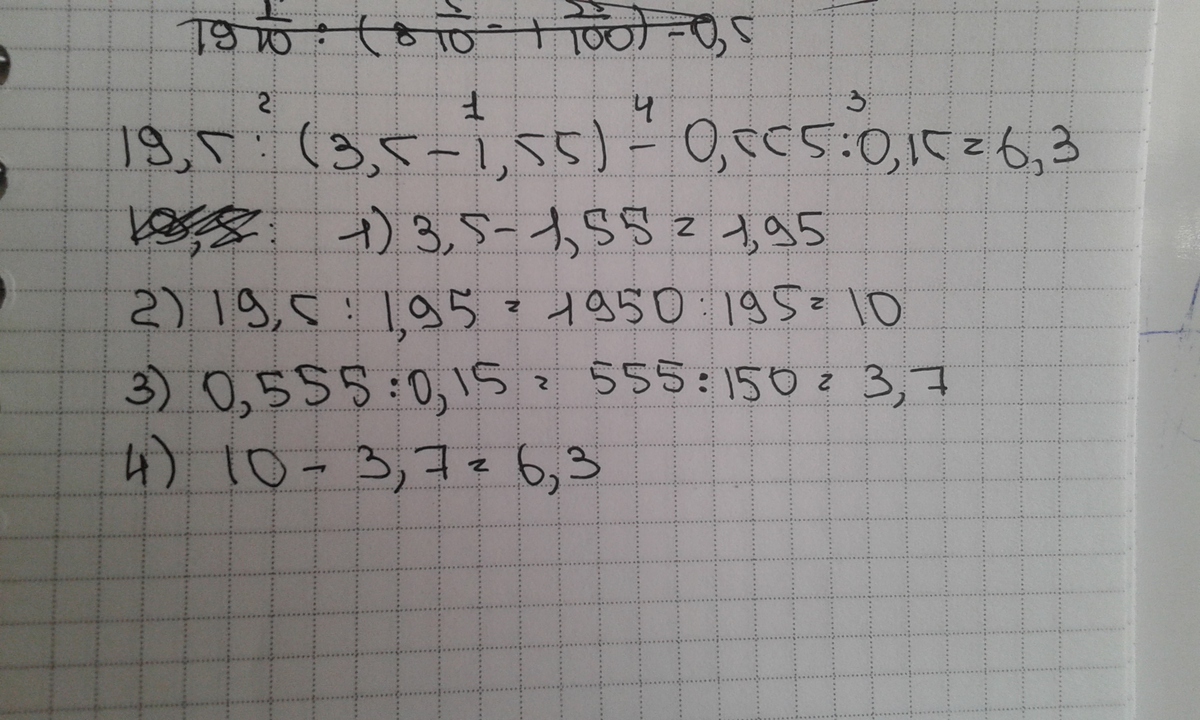 19 5/10 : (3 5/10 - 1 55/100) - 0,5
2 1 4 3
19,5 : (3,5-1,55) - 0,555:0,15=6,3
1) 3,5-1,55=1,95
2) 19,5:1,95=1950:195=10
3) 0,555:0,15=555:150=3,7
4) 10-3,7=6,3